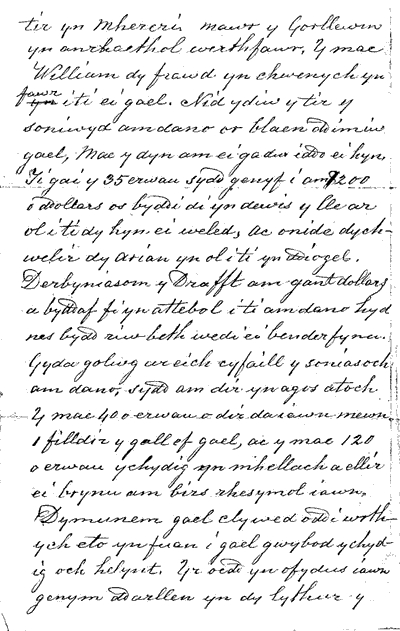 tir yn Mhererin mawr y Gorllewin
yn anrhaethol werthfawr. Y mae
William dy frawd yn chwenych yn
fawr i ti ei gael. Nid ydiw y tir y
soniwyd am dano or blaen ddim iw
gael, Mae y dyn am ei gadw iddo ei hyn.
Ti gai y 35 erwau sydd genyf i am 1200
o ddollars os byddi di yn dewis y lle ar
ol i ti dy hyn ei weled, ac onide dych-
welir dy arian yn ol i ti yn ddiogel.
Derbyniasom y Drafft am gant dollars
a byddaf fi yn attebol i ti am dano hyd
nes bydd riw beth wedi ei benderfynu.
Gyda golwg ar eich cyfaill y soniasoch
am dano, sydd am dir yn agos atoch
Y mae 40 o erwau o dir da iawn mewn
1 filldir y gall ef gael, ac y mae 120
o erwau ychydig yn mhellach a ellir
ei brynu am birs rhesymol iawn.
Dymunem gael clywed oddi worth-
ych eto yn fuan i gael gwybod ychyd-
ig och helynt. Yr oedd yn ofydus iawn
genym ddarllen yn dy lythur y